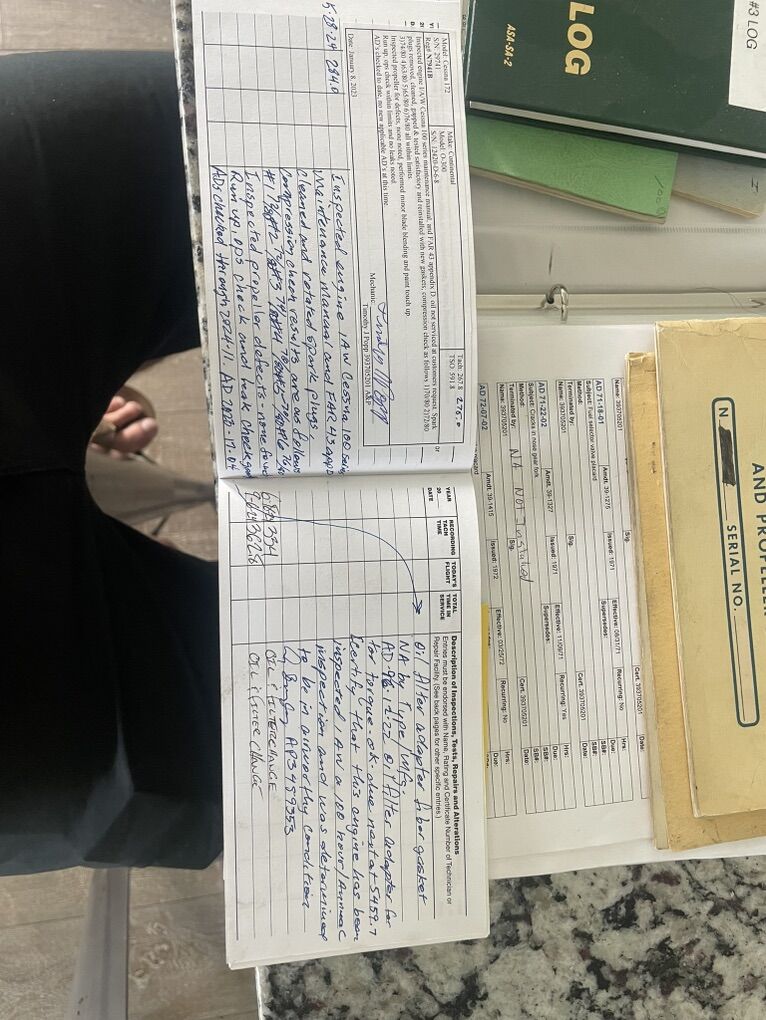 #3 LOG
LOG
ASA-SA-2
AND PROPELLER
N
SERIAL NO.
Model: Cessna 172
Make: Continental
Tach: 267.8 276.0
S/N: 29741
Model: O-300
TSO: 591.8
Reg# N7941B
S/N: 12420-D-6-8
Inspected engine I/A/W Cessna 100 series maintenance manual, and FAR 43 appendix D. oil not serviced at customers request. Spark
plugs removed, cleaned, gapped & tested satisfactory and reinstalled with new gaskets; compression check as follows 1)70/80 2)72/80
3)74/80 4)63/80 5)65/80 6)76/80 all within limits.
Inspected propeller for defects, none noted, performed minor blade blending and paint touch up.
Run up, ops check within limits and no leaks noted.
AD's checked to date, no new applicable AD's at this time.
Mechanic
Timothy J Popp 393705201 A&P
Date: January 8, 2023
5-28-24 284.0
Inspected engine IAW Cessna 100 Series
Maintenance Manual and FAR 43 app D
Cleaned and rotated spark plugs,
Compression check results are as follows
Inspected propeller defects-none found
Run up, ops check and leak check good
ADs checked through 2024-11, AD 2020-17-04
YEAR
20
DATE
RECORDING
TACH
TIME
TODAY'S
FLIGHT
TOTAL
TIME IN
SERVICE
Description of Inspections, Tests, Repairs and Alterations
Entries must be endorsed with Name, Rating and Certificate Number of Technician or
Repair Facility. (See back pages for other specific entries.)
Oil filter adapter fiber gasket
NA by Type/Mfg.
AD-96-12-22 oil filter adapter for
for torque-ok due next at 5459.7
I certify that this engine has been
inspected IAW a 100 hour/Annual
inspection and was determined
to be in airworthy condition
AP3459353
OIL & FILTER CHANGE
OIL & FILTER CHANGE
Name: 393705201
Sig.
Cert. 393705201
Date:
AD 71-18-01
Amdt. 39-1275
Issued: 1971
Effective: 08/31/71
Recurring: No
Hrs:
Subject: Fuel selector valve placard
Supersedes:
Due:
Method:
SB#:
Terminated by:
Sig.
Date:
Name: 393705201
Cert. 393705201
AD 71-22-02
Amdt. 39-1327
Issued: 1971
Effective: 11/09/71
Recurring: Yes
Hrs:
Subject: Cracks in nose gear fork
Supersedes:
Due:
Method:
SB#:
Terminated by: NA Not Installed
Date:
Name: 393705201
Sig.
Cert. 393705201
AD 72-07-02
Amdt. 39-1415
Issued: 1972
Effective: 03/25/72
Recurring: No
Hrs:
Due: